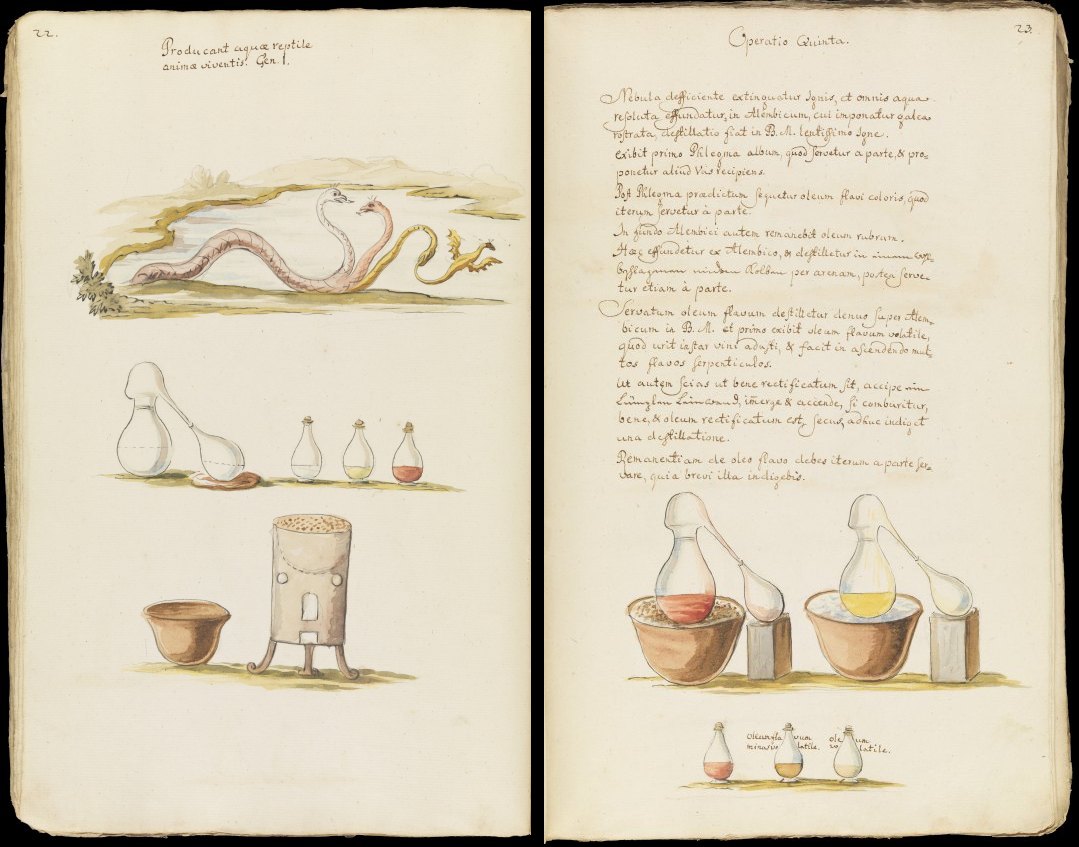 22.
Producant aquæ reptile
animæ viventis. Gen. 1.
23.
Operatio Quinta.
Nebula defficiente extinguatur Ignis, et omnis aqua
resoluta effundatur, in Alembicum, cui imponatur galea
rostrata, destillatio fiat in B. M. lentissimo Igne.
exibit primo Phlegma album, quod servetur a parte, & pro=
ponetur aliud Vas recipiens.
Post Phlegma prædictum sequetur oleum flavi coloris, quod
iterum servetur à parte.
In fundo Alembici autem remanebit oleum rubrum.
Hæc effundetur ex Alembico, & destilletur in
Kolben per arenam, postea serve=
tur etiam à parte.
Servatum oleum flavum destilletur denuo super Alem=
bicum in B. M. et primo exibit oleum flavum volatile,
quod urit instar vini adusti, & facit in ascendendo mul=
tos flavos serpenticulos.
Ut autem scias ut bene rectificatum sit, accipe ein
Leinwand, imerge & accende, si comburitur,
bene, & oleum rectificatum est, secus adhuc indiget
una destillatione.
Remanentiam de oleo flavo debes iterum a parte ser=
vare, quia brevi illa indigebis.
oleum flavum
minus volatile.
oleum
volatile.